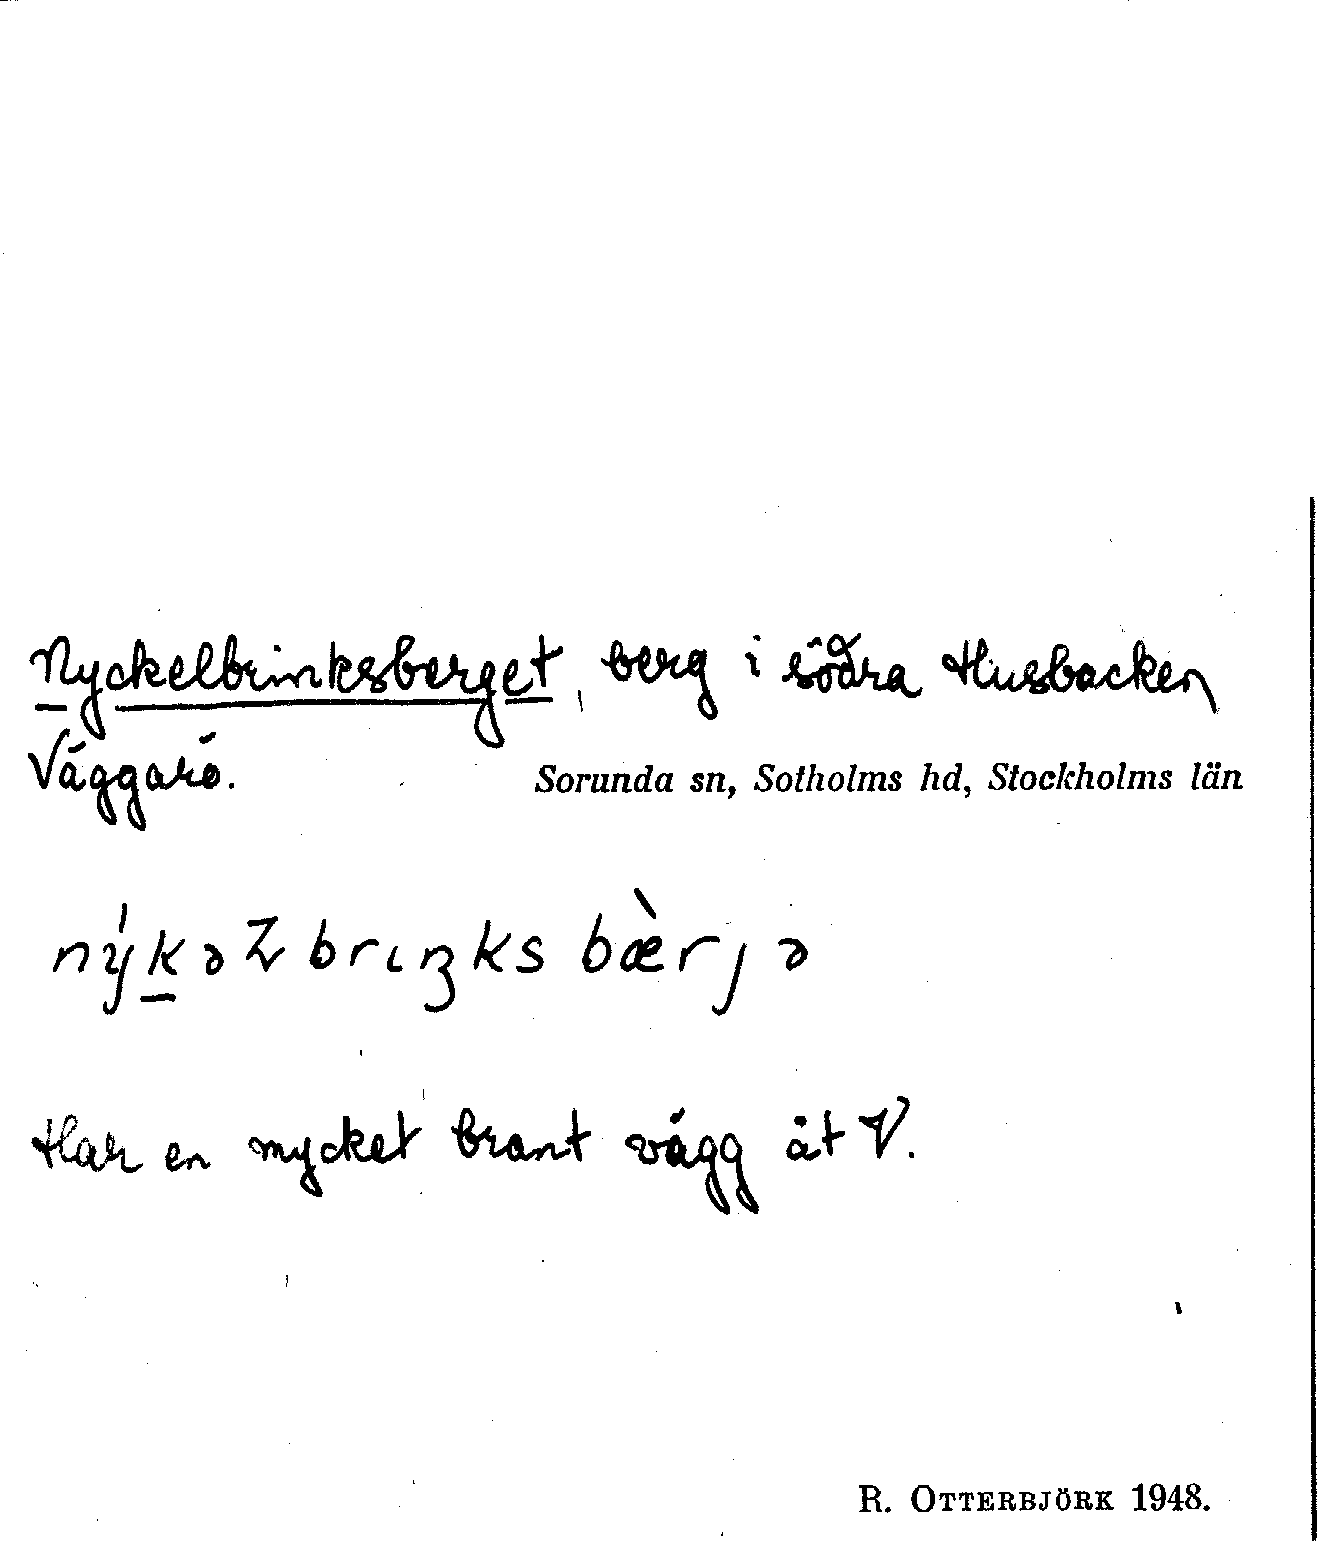 Nyckelbrinksberget, berg i södra Husbacken
Väggarö.
Sorunda sn, Sotholms hd, Stockholms län
Har en mycket brant vägg åt V.
R. OTTERBJÖRK 1948.